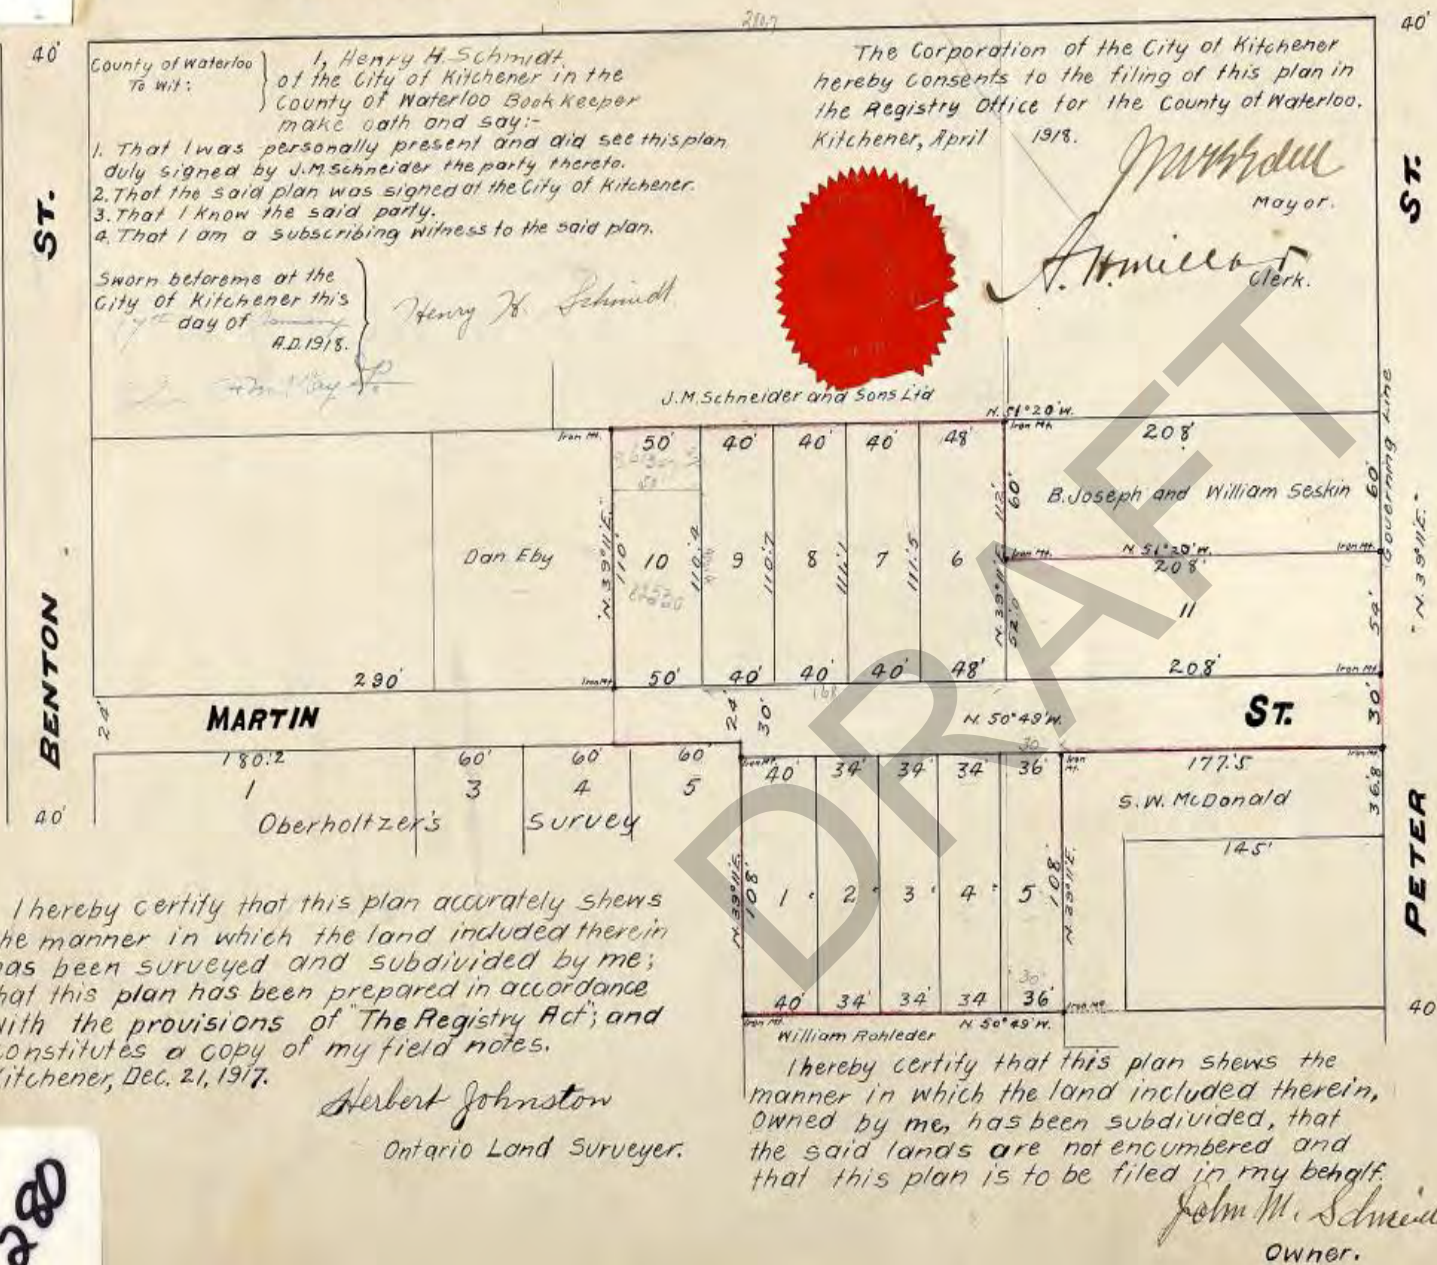 40'
40'
ST.
ST.
County of Waterloo
To Wit:
I, Henry H. Schmidt.
of the City of Kitchener in the
County of Waterloo Book Keeper
make oath and say:-
1. That I was personally present and did see this plan
duly signed by J.M. Schneider the party thereto.
2. That the said plan was signed at the City of Kitchener.
3. That I know the said party.
4. That I am a subscribing witness to the said plan.
Sworn before me at the
City of Kitchener this
day of
A.D. 1918.
Henry H. Schmidt
The Corporation of the City of Kitchener
hereby consents to the filing of this plan in
the Registry Office for the County of Waterloo.
Kitchener, April 1918.
Mayor.
A.H. Millar
Clerk.
J.M. Schneider and Sons Ltd
N. 51°20'W.
Iron Mt.
50' 40' 40' 40' 48'
Iron Mt.
208'
Governing Line
"N.39°11'E."
60'
B. Joseph and William Seskin
60'
112'
Dan Eby
"N.39°11'E."
110'
10
110.4
9
110.7
8
111.1
7
111.5
6
N.39°11'E.
52.0
Iron Mt.
N. 51°20'W.
208'
Iron Mt.
11
54'
290'
Iron Mt.
50' 40' 40' 40' 48'
208'
Iron Mt.
168
BENTON
24'
MARTIN
24'
30'
N. 50°49'W.
ST.
30'
180.2
60'
60'
60'
1
3
4
5
Oberholtzer's Survey
40'
Iron Mt.
40' 34' 34' 34' 36'
30
Iron Mt.
177.5
Iron Mt.
S.W. McDonald
36.8
145'
PETER
40
N.39°11'E.
108'
1
2
3
4
5
108'
N.39°11'E.
30'
40' 34' 34' 34 36'
Iron Mt.
Iron Mt.
William Rohleder
N 50°49'W.
DRAFT
I hereby certify that this plan accurately shews
he manner in which the land included therein
as been surveyed and subdivided by me;
hat this plan has been prepared in accordance
ith the provisions of "The Registry Act"; and
onstitutes a copy of my field notes.
itchener, Dec. 21, 1917.
Herbert Johnston
Ontario Land Surveyer.
I hereby certify that this plan shews the
manner in which the land included therein,
owned by me, has been subdivided, that
the said lands are not encumbered and
that this plan is to be filed in my behalf.
John M. Schneid
Owner.
280